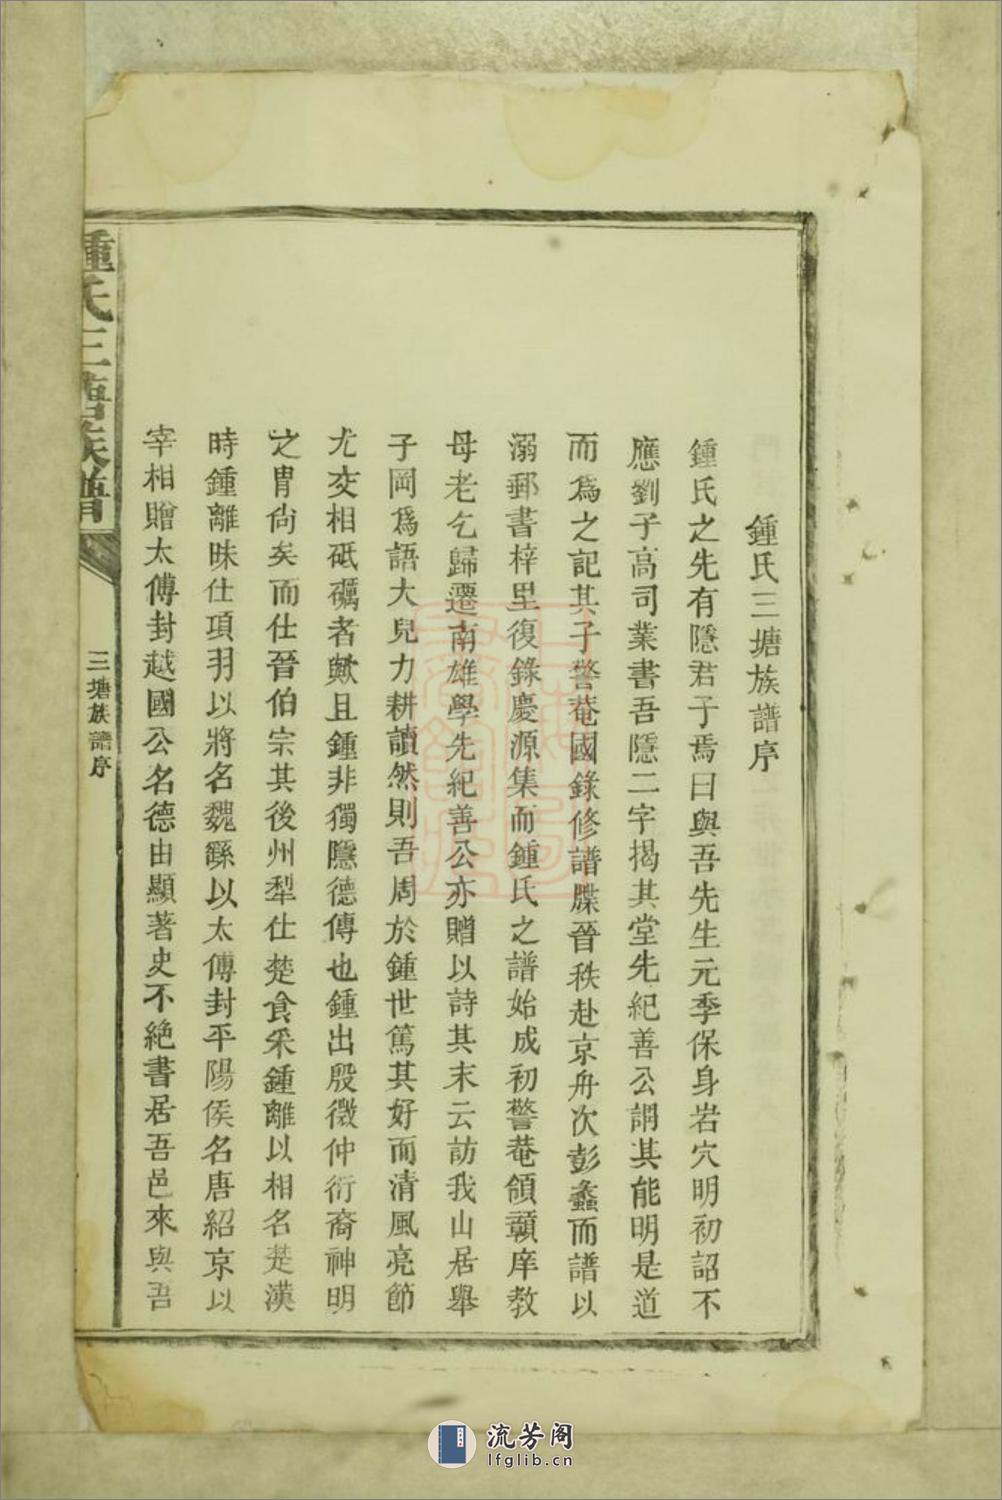 鍾氏三塘族譜序
鍾氏之先有隱君子焉曰與吾先生元季保身岩穴明初詔不
應劉子高司業書吾隱二字揭其堂先紀善公謂其能明是道
而爲之記其子警菴國錄修譜牒晉秩赴京舟次彭蠡而譜以
溺郵書梓里復錄慶源集而鍾氏之譜始成初警菴領贛庠教
母老乞歸遷南雄學先紀善公亦贈以詩其末云訪我山居舉
子岡爲語大兒力耕讀然則吾周於鍾世篤其好而清風亮節
尤交相砥礪者歟且鍾非獨隱德傳也鍾出殷微仲衍裔神明
之冑尚矣而仕晉伯宗其後州犁仕楚食采鍾離以相名楚漢
時鍾離昧仕項羽以將名魏繇以太傅封平陽侯名唐紹京以
宰相贈太傅封越國公名德由顯著史不絶書居吾邑來與吾
鍾氏三塘族譜
三塘族譜序
流芳阁
lfglib.cn